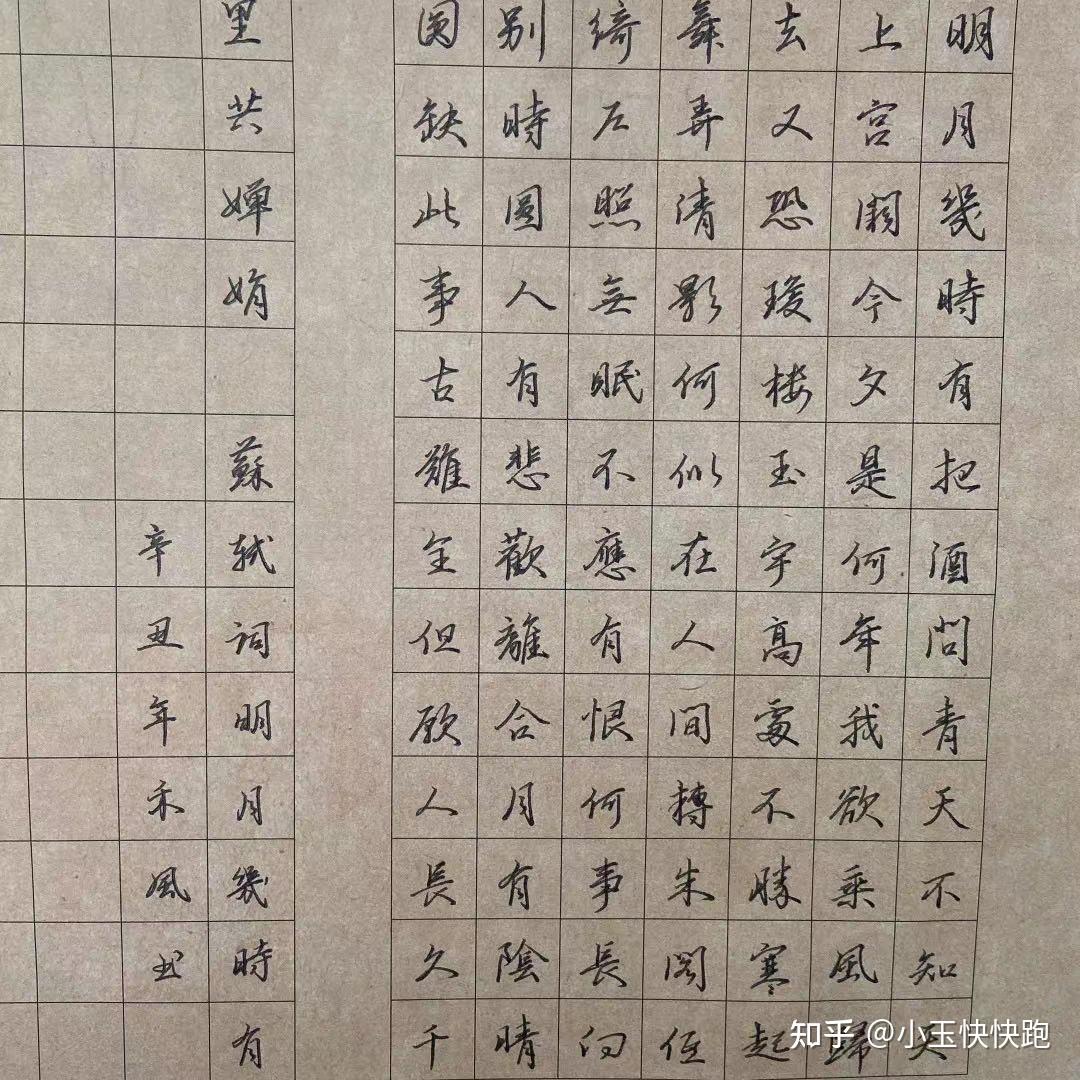 明月幾時有把酒問青天不知天
上宮闕今夕是何年我欲乘風歸
去又恐瓊樓玉宇高處不勝寒起
舞弄清影何似在人間轉朱閣低
綺户照無眠不應有恨何事長向
别時圓人有悲歡離合月有陰晴
圆缺此事古難全但願人長久千
里共嬋娟 蘇軾詞明月幾時有
辛丑年禾風书
知乎 @小玉快快跑